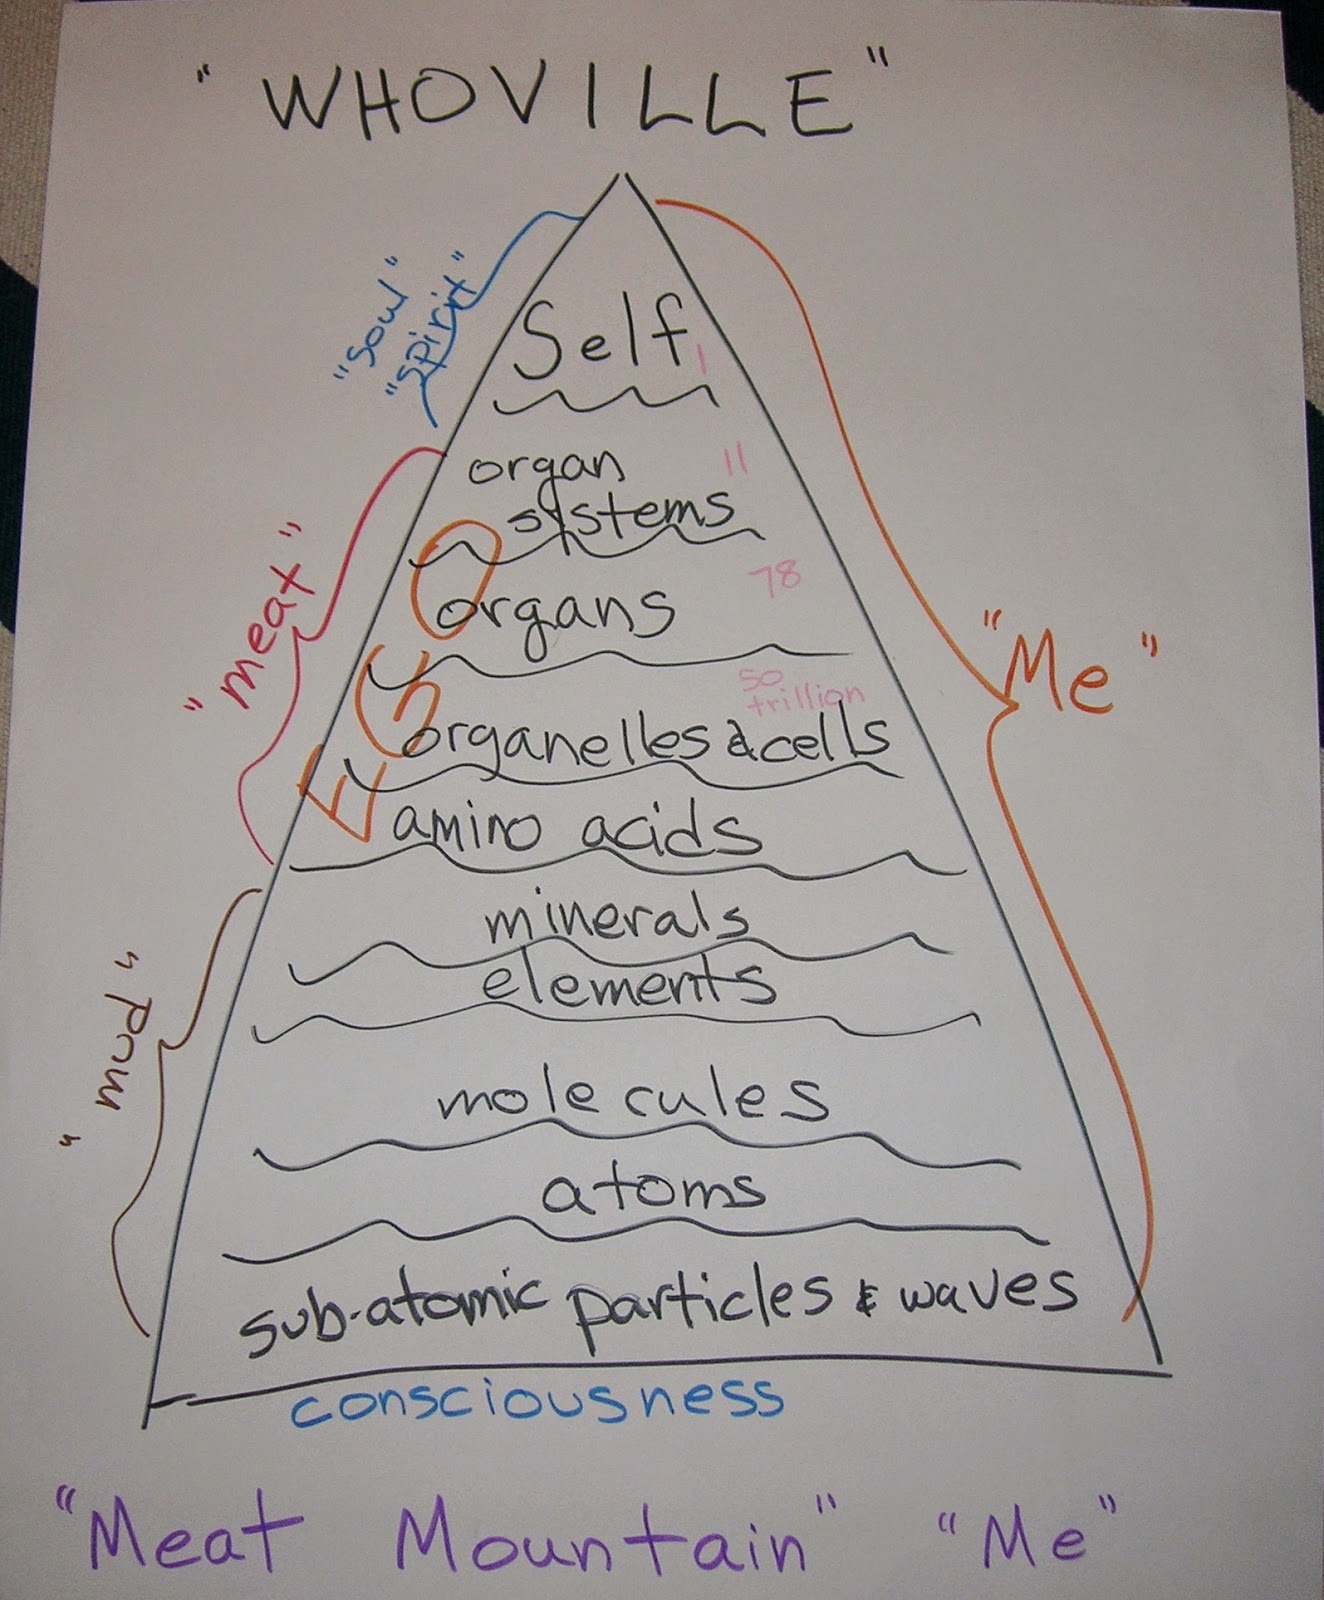 "WHOVILLE"
"soul"
"spirit"
Self 1
organ 11
systems
organs 78
"meat"
"Me"
50
trillion
organelles & cells
amino acids
minerals
elements
"mud"
molecules
atoms
sub-atomic particles & waves
consciousness
"Meat Mountain" "Me"